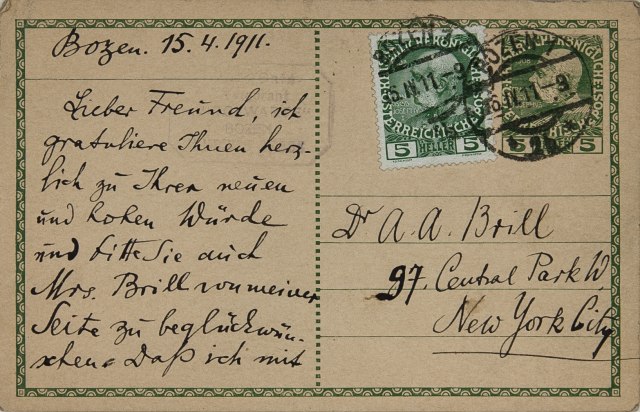 Bozen. 15.4.1911.
Lieber Freund, ich
gratuliere Ihnen herz-
lich zu Ihrer neuen
und hohen Würde
und bitte Sie auch
Mrs. Brill von meiner
Seite zu beglückwün-
schen. Daß ich mit
BOZEN 1
16.IV.11.-9
5 HELLER 5
BOZEN 1
16.IV.11.-9
5 HELLER 5
Dr A. A. Brill
97. Central Park W.
New York City